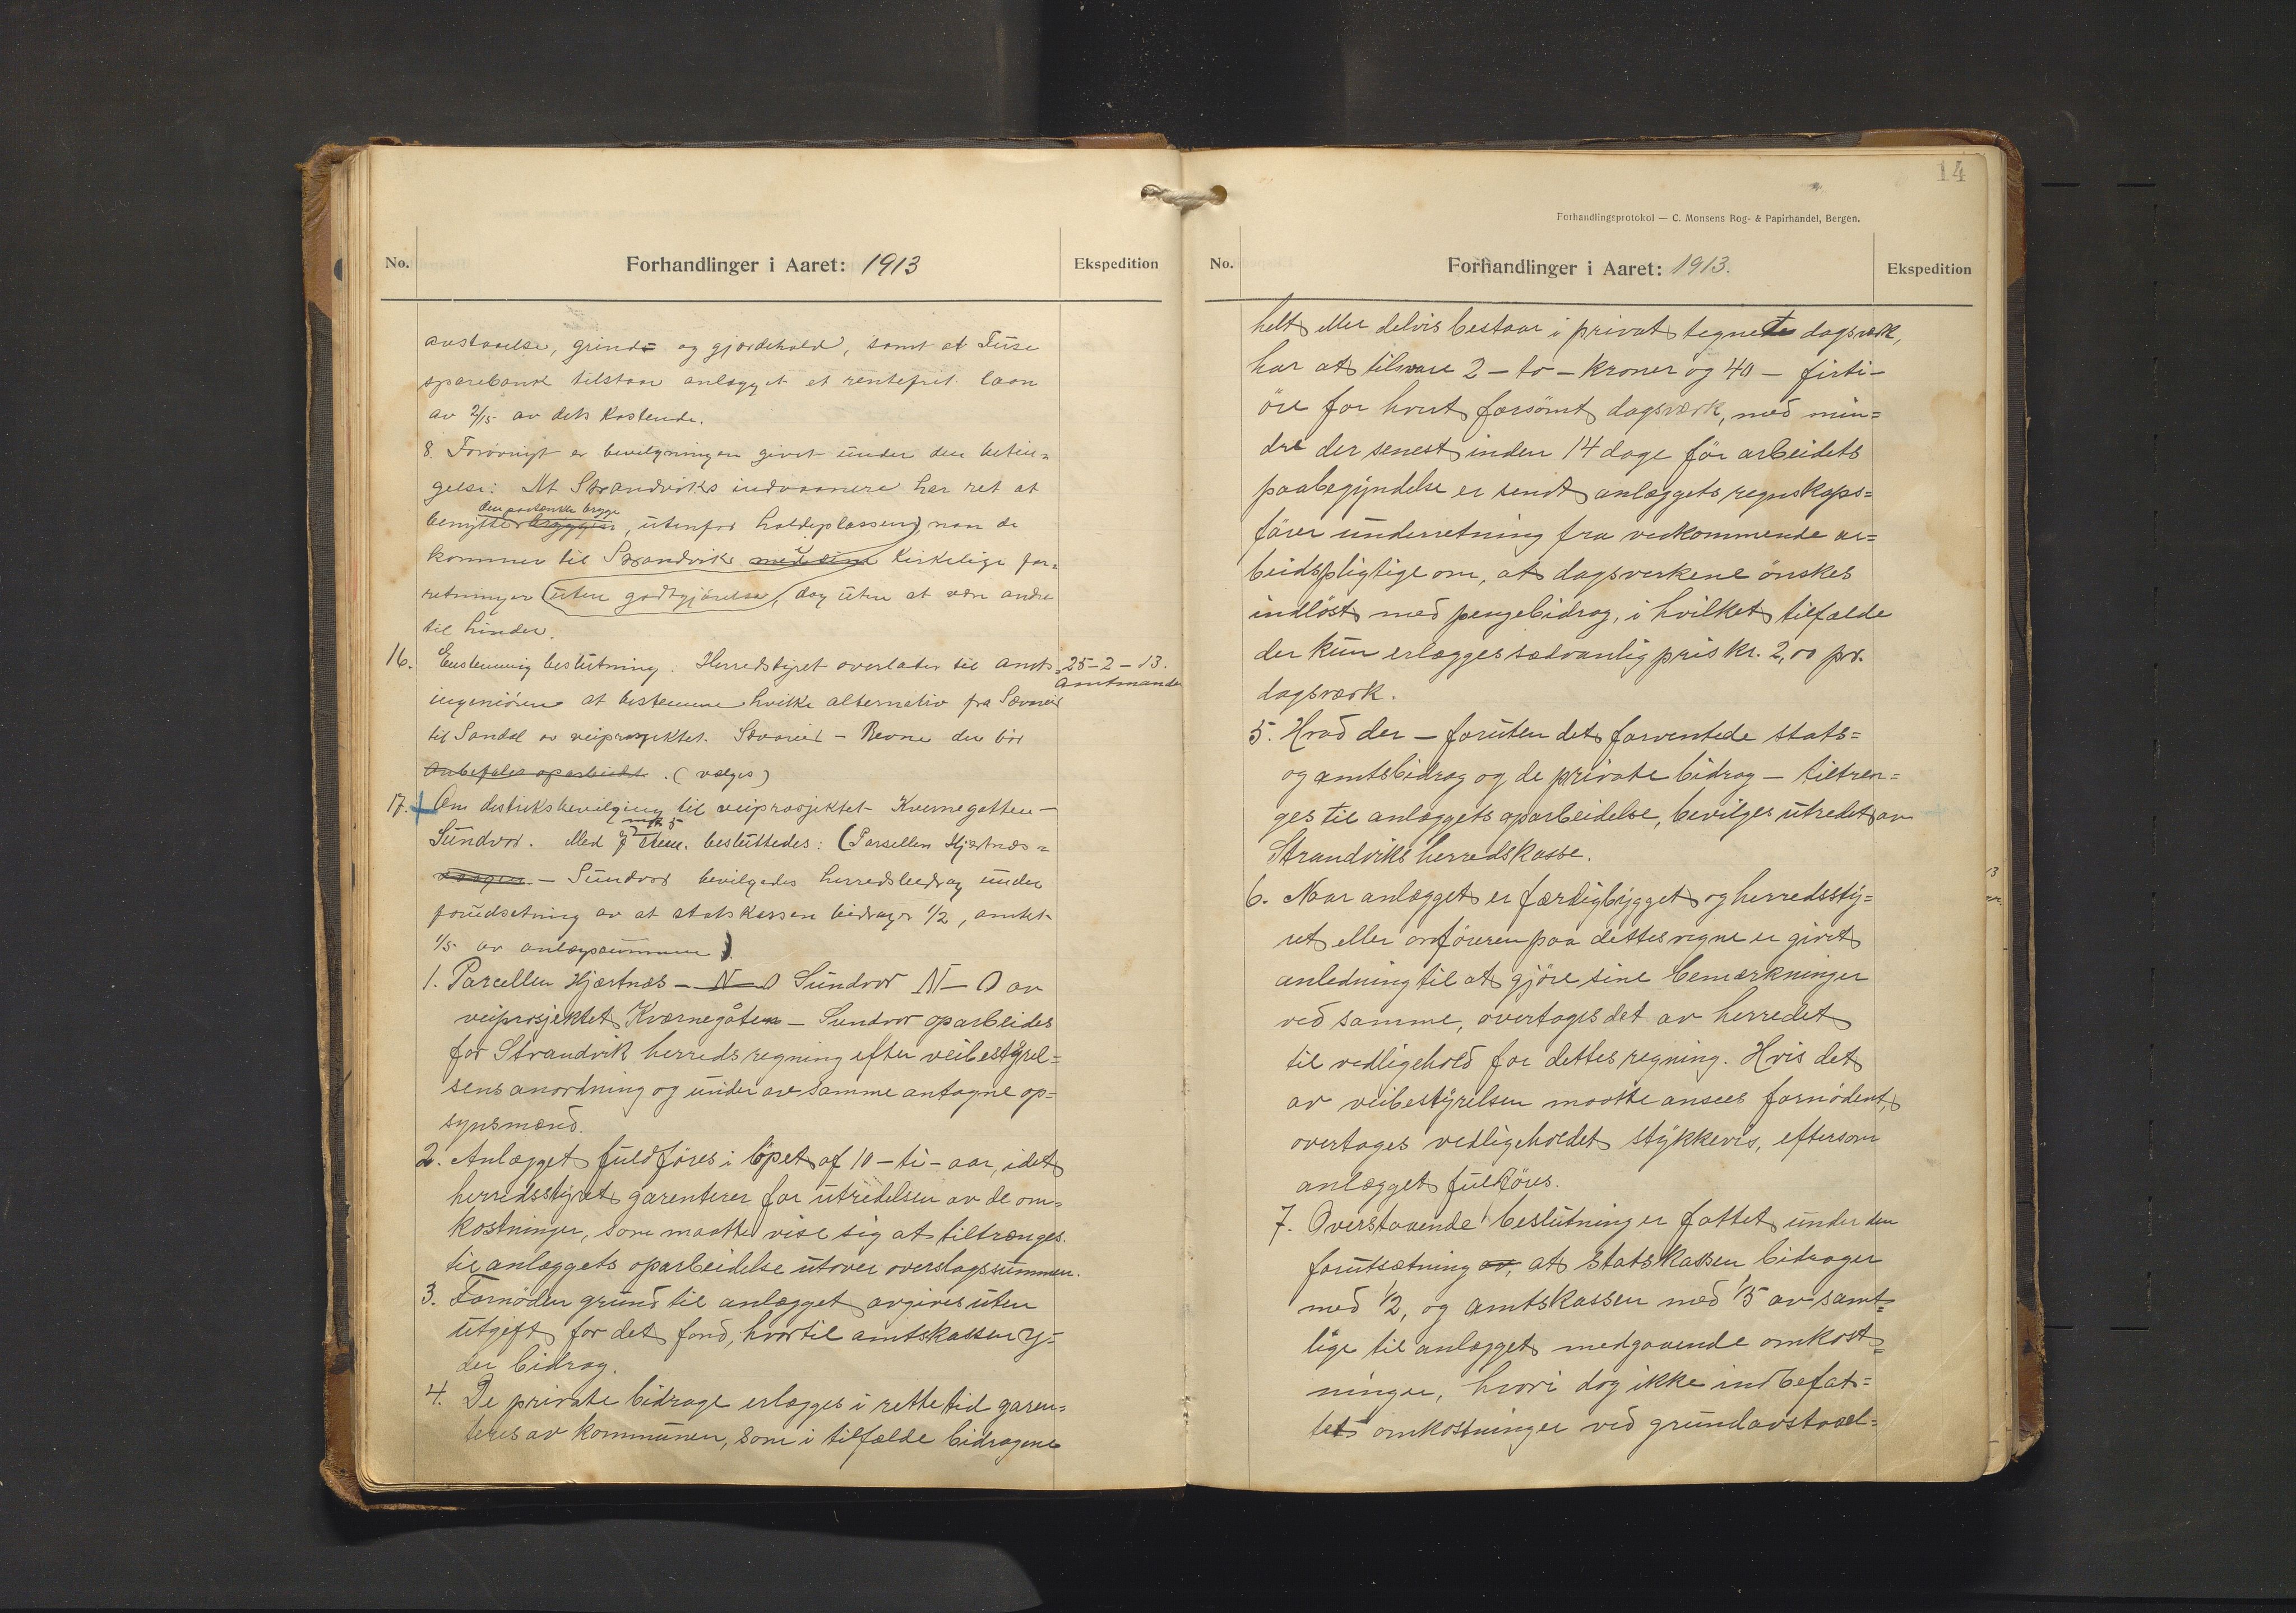 No.
Forhandlinger i Aaret: 1913
Ekspedition
avstaaelse, grind= og gjærdehold, samt at Fuse
sparebank tilstaar anlægget et rentefrit laan
av 2/15 av dets kostende.
8. Forøvrigt er bevilgningen givet under den betin=
gelse: At Strandviks indvaanere har ret at
den paatænkte brygge
benytte bryggen, utenfor holdeplassen) naar de
kommer til Strandvik med sine i kirkelige for=
retninger (uten godtgjørelse), dog uten at være andre
til hinder.
16. Enstemmig beslutning. Herredstyret overlater til amts=
25-2-13.
Amtmanden
ingeniøren at bestemme hvilke alternativ fra Sævareid
til Sandal av veiprosjektet Sævareid - Revne der bør
anbefales oparbeidet. (vælges)
17. Om distriksbevilgning til veiprosjektet Kvernegatten -
mot 5
Sundvor. Med 7 stem. besluttedes: (Parsellen Hjærtnæs=
vaagen - Sundvor bevilgedes herredsbidrag under
forudsetning av at statskassen bidrager 1/2, amtet
1/5 av anlægssummen)
1. Parcellen Hjærtnæs - N - O Sundvor N - O av
veiprosjektet Kværnegåten - Sundvor oparbeides
for Strandvik herreds regning efter veibestyrel=
sens anordning og under av samme antagne op=
synsmænd.
2. Anlægget fuldføres i løpet af 10 - ti - aar, idet
herredsstyret garenterer for utredelsen av de om=
kostninger, som maatte vise sig at tiltrænges
til anlæggets oparbeidelse utover overslagssummen.
3. Fornøden grund til anlægget avgives uten
utgift for det fond, hvortil amtskassen y=
der bidrag.
4. De private bidrage erlægges i rette tid garen=
teres av kommunen, som i tilfælde bidragene
14
Forhandlingsprotokol — C. Monsens Bog- & Papirhandel, Bergen.
No.
Forhandlinger i Aaret: 1913.
Ekspedition
helt eller delvis bestaar i privat tegnete dagsverk,
har at tilsvare 2 - to - kroner og 40 - firti -
øre for hvert forsømt dagsværk, med min=
dre der senest inden 14 dage før arbeidets
paabegyndelse er sendt anlæggets regnskaps=
fører underretning fra vedkommende ar=
beidspligtige om, at dagsverkene ønskes
indløst med pengebidrag, i hvilket tilfælde
der kun erlægges sædvanlig pris kr. 2,00 pr.
dagsværk.
5. Hvad der - foruten det forventede stats=
og amtsbidrag og de private bidrag - tiltræn=
ges til anlæggets oparbeidelse, bevilges utredet av
Strandviks herredskasse.
6. Naar anlægget er færdigbygget og herredssty=
ret eller ordføreren paa dettes vegne er givet
anledning til at gjøre sine bemærkninger
ved samme, overtages det av herredet
til vedligehold for dettes regning. Hvis det
av veibestyrelsen maatte ansees fornødent,
overtages vedligeholdet stykkevis, eftersom
anlægget fuldføres.
7. Overstaaende beslutning er fattet under den
forutsætning av, at statskassen bidrager
med 1/2, og amtskassen med 1/5 av samt=
lige til anlægget medgaaende omkost=
ninger, hvori dog ikke indbefat=
tet omkostninger ved grundavstaael=